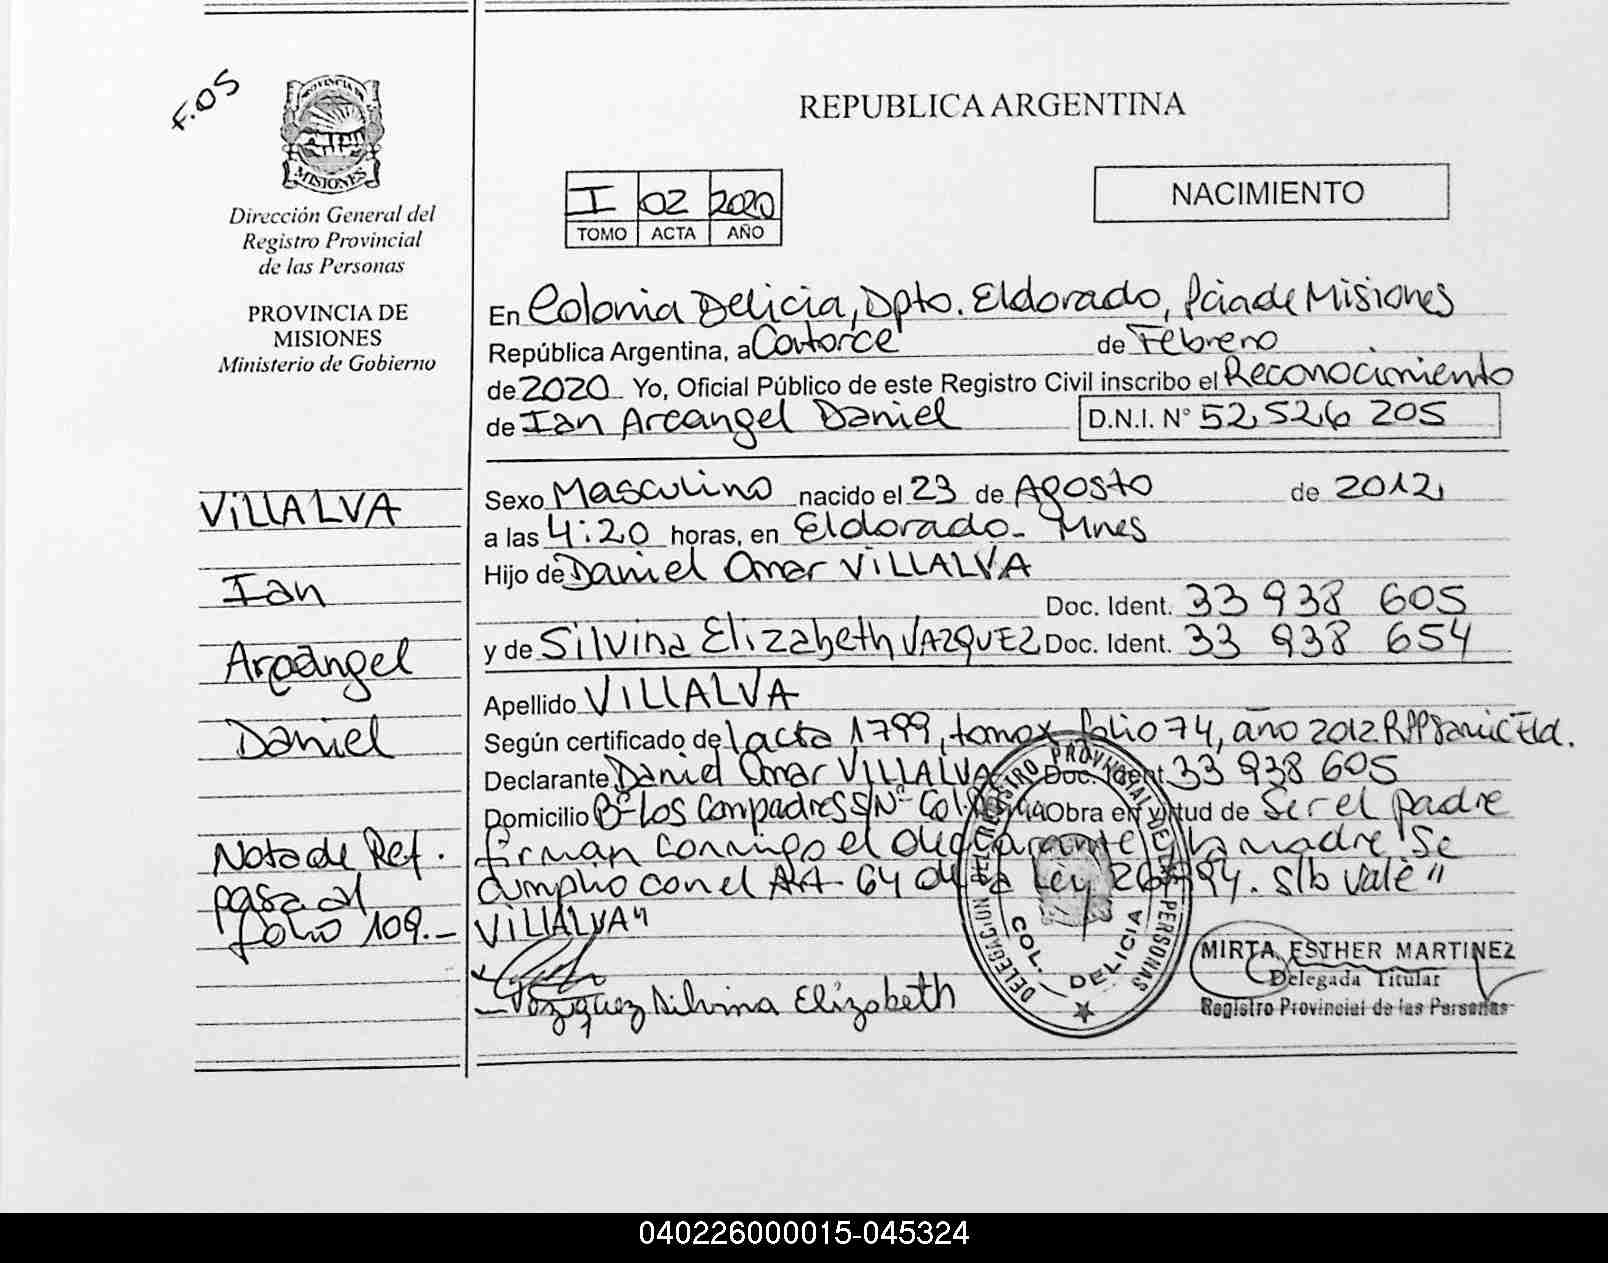 F.05
PROVINCIA DE
MISIONES
Dirección General del
Registro Provincial
de las Personas
PROVINCIA DE
MISIONES
Ministerio de Gobierno
VILLALVA
Ian
Arcangel
Daniel
Nota de Ref.
pasa al
folio 109.-
REPUBLICA ARGENTINA
I 02 2020
TOMO ACTA AÑO
NACIMIENTO
En Colonia Delicia, Dpto. Eldorado, Pcia de Misiones
República Argentina, a Catorce de Febrero
de 2020 Yo, Oficial Público de este Registro Civil inscribo el Reconocimiento
de Ian Arcangel Daniel D.N.I. N° 52,526 205
Sexo Masculino nacido el 23 de Agosto de 2012,
a las 4:20 horas, en Eldorado - Mnes
Hijo de Daniel Omar VILLALVA
Doc. Ident. 33 938 605
y de Silvina Elizabeth VAZQUEZ Doc. Ident. 33 938 654
Apellido VILLALVA
Según certificado de acta 1799, tomo X folio 74, año 2012 Eld.
Declarante Daniel Omar VILLALVA Doc. Ident. 33 938 605
Domicilio Bº Los Compadres S/Nº Col. Obra en virtud de Ser el padre
firman conmigo el declarante y la madre Se
cumplio con el Art 64 de la Ley 26994. s/b vale "
VILLALVA"
Vazquez Silvina Elizabeth
DELEGACION DEL REGISTRO PROVINCIAL DE LAS PERSONAS
COL. DELICIA
MIRTA ESTHER MARTINEZ
Delegada Titular
Registro Provincial de las Personas
040226000015-045324